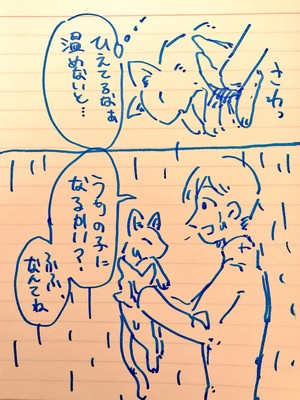 さわっ
ひえてるなぁ
温めないと…
うちの子に
なるかい?
ふふ、
なんてね